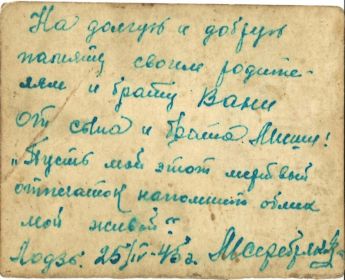 На долгую и добрую
память своим родите-
лям и брату Вани
от сына и брата Миши!
"Пусть мой этот мертвый
отпечаток напомнит облик
мой живой"
Лодзь. 25/IV-45г.